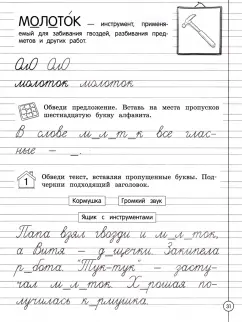 МОЛОТО́К — инструмент, применя-
емый для забивания гвоздей, разбивания пред-
метов и других работ.
Оло Оло
молоток молоток
Обведи предложение. Вставь на места пропусков
шестнадцатую букву алфавита.
В слове м_л_т_к все глас-
ные – _.
1
Обведи текст, вставляя пропущенные буквы. Под-
черкни подходящий заголовок.
Кормушка Громкий звук
Ящик с инструментами
Папа взял гвозди и м_л_ток,
а Витя – д_щечки. Закипела
р_бота. "Тук-тук" – засту-
чал м_л_ток. Х_рошая по-
лучилась к_рмушка.
31